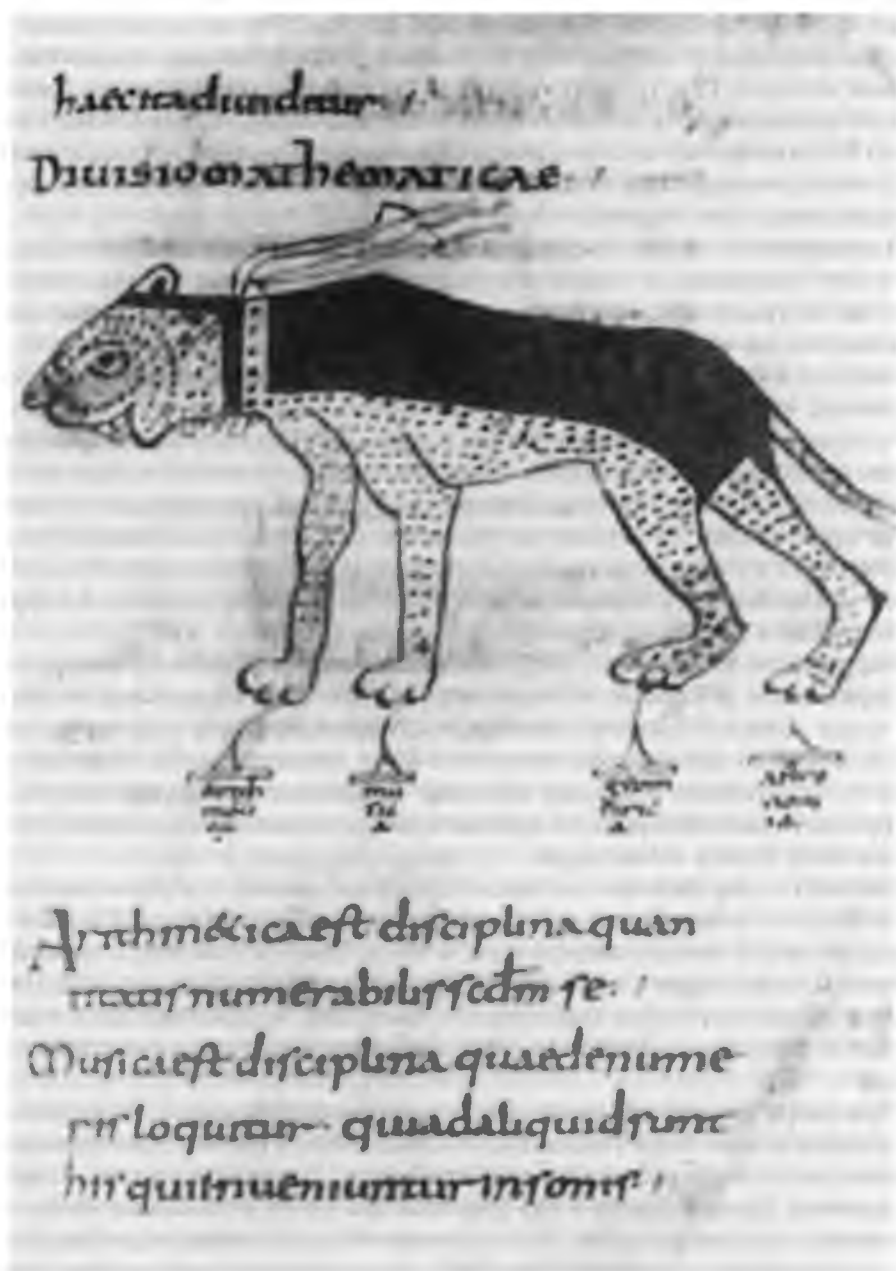 haec ita diuiditur
Diuisio mathematicae
arith
meti
ca
mu
sic
a
geom
etric
a
astro
nom
ia
Arithmeticaest disciplina quan
titatis numerabilis scdm se
Musicaest disciplina quaedenume
ris loquitur quiadaliquidsunt
his quiinueniuntur insonis